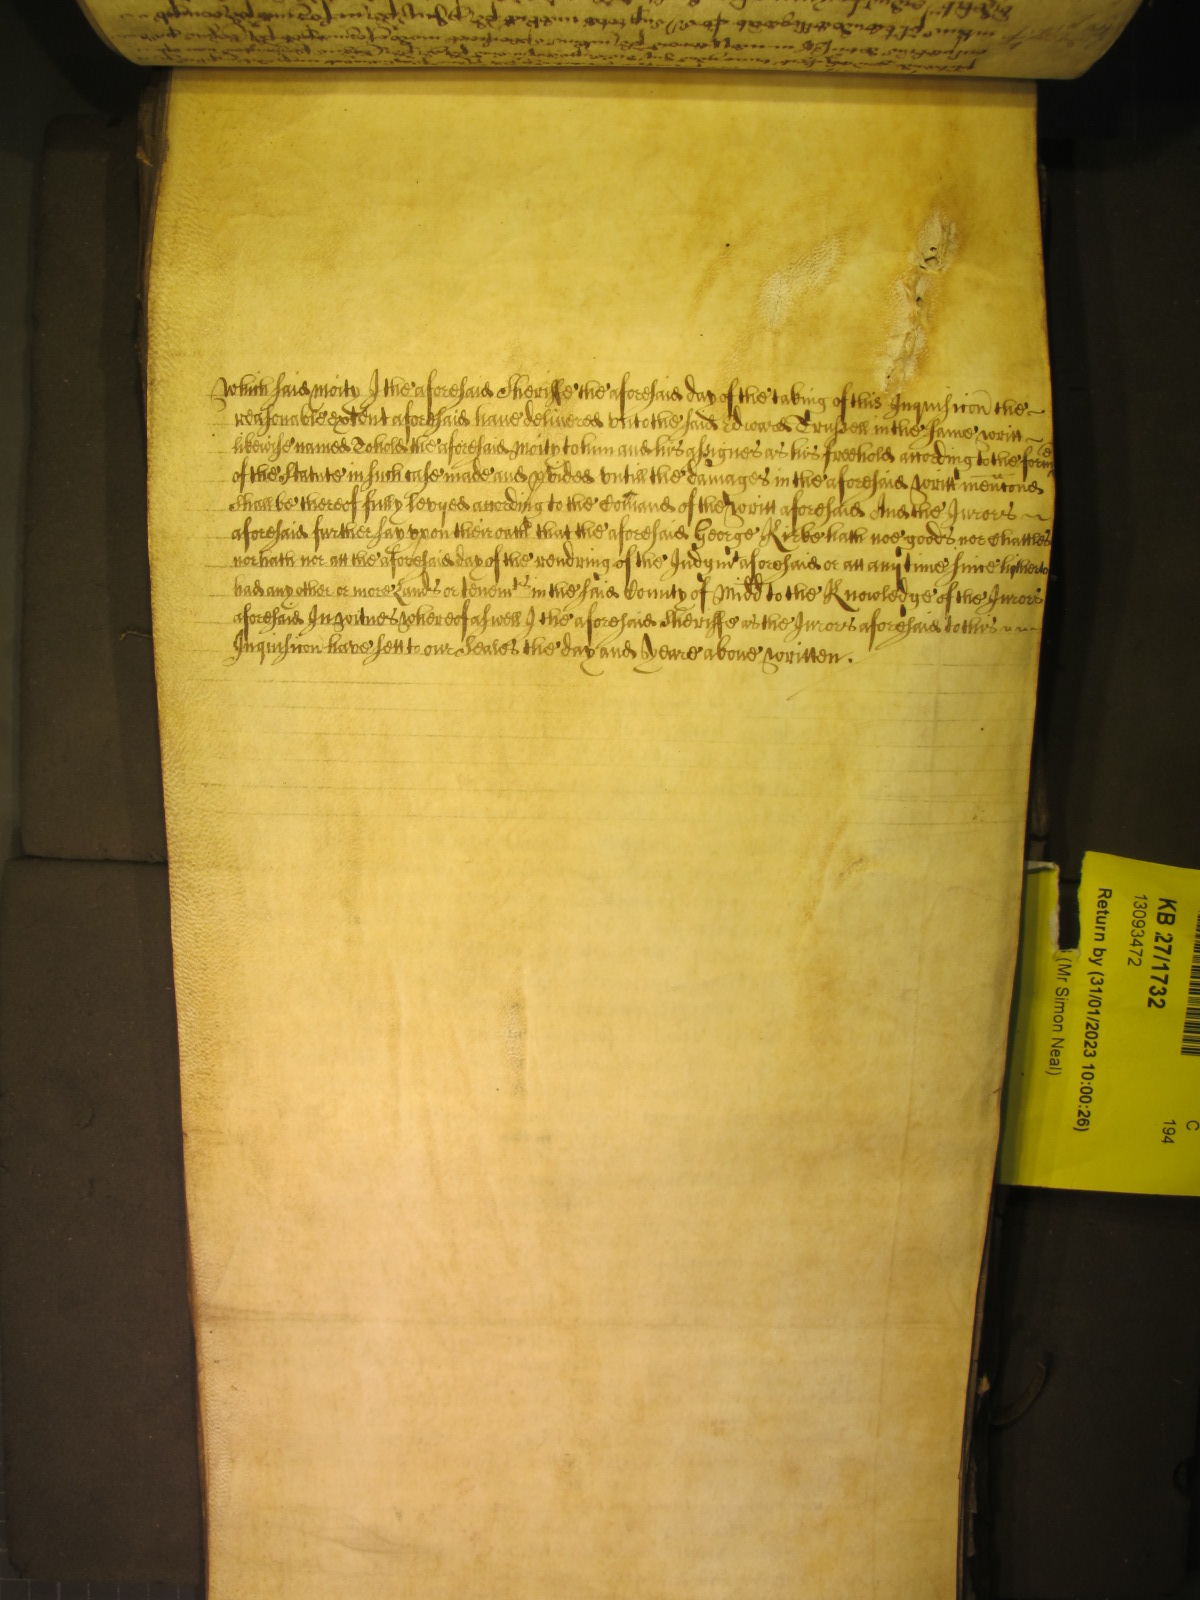 Which said moity I the aforesaid Sheriffe the aforesaid day of the taking of this Inquisicon the
reasonable extent aforesaid have delivered unto the said Edward Trussell in the same writt
likewise named To hold the aforesaid moity to him and his assignes as his freehold according to the forme
of the Statute in such case made and pvided untill the damages in the aforesaid writt menconed
shall be thereof fully levyed according to the Comand of the writt aforesaid And the Jurors
aforesaid further say upon their oath that the aforesaid George Kirke hath noe goods nor Chattles
nor hath nor att the aforesaid day of the rendring of the Judgmt aforesaid or att any time since hitherto
had any other or more Lands or tenemts in the said County of Midd to the Knowledge of the Jurors
aforesaid In witnes whereof aswell I the aforesaid Sheriffe as the Jurors aforesaid to this
Inquisicon have sett our Seales the day and Yeare above written.
C
194
KB 27/1732
13093472
Return by (31/01/2023 10:00:26)
(Mr Simon Neal)